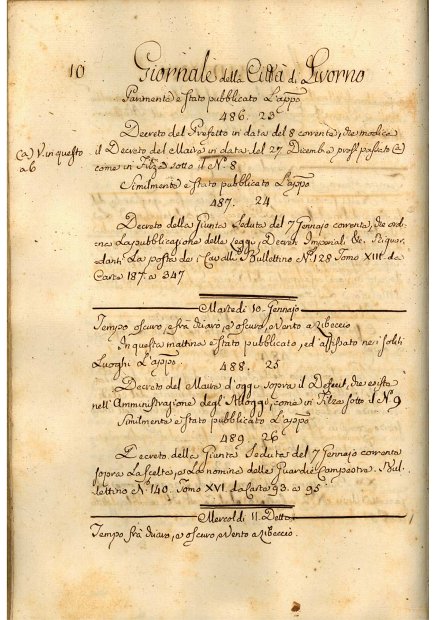 10 Giornale della Città di Livorno
Parimente è stato pubblicato L'appo
486. 23
Decreto del Prefetto in data del 8 corrente, che modica
(a) V. in questo
a 6
il Decreto del Maire in data del 27 Dicembre pross. passato (a)
come in Filza sotto il N° 8
Similmente è stato pubblicato L'appo
487. 24
Decreto della Giunta Seduta del 7 Gennajo corrente, che ord
ena La pubblicazione delle Leggi, Decreti Imperiali &c. Riguar
danti La posta dei Cavalli Bullettino N° 128 Tomo XIII. da
Carte 187. a 347
Martedì 10. Gennajo
Tempo oscuro, e frà chiaro, e oscuro, e Vento a Libeccio
In questa mattina è stato pubblicato, ed affissato nei soliti
Luoghi L'appo
488. 25
Decreto del Maire d'oggi sopra il Deficit, che esiste
nell'Amministrazione degl'Alloggi, come in Filza sotto il N. 9
Similmente è stato pubblicato L'appo
489. 26
Decreto della Giunta Seduta del 7 Gennajo corrente
sopra La scelta, e La nomina delle Guardie Campestre. Bul
lettino N° 140. Tomo XVI. da Carte 93. a 95.
Mercoldì 11. Detto
Tempo frà chiaro, e oscuro, e Vento a Libeccio.